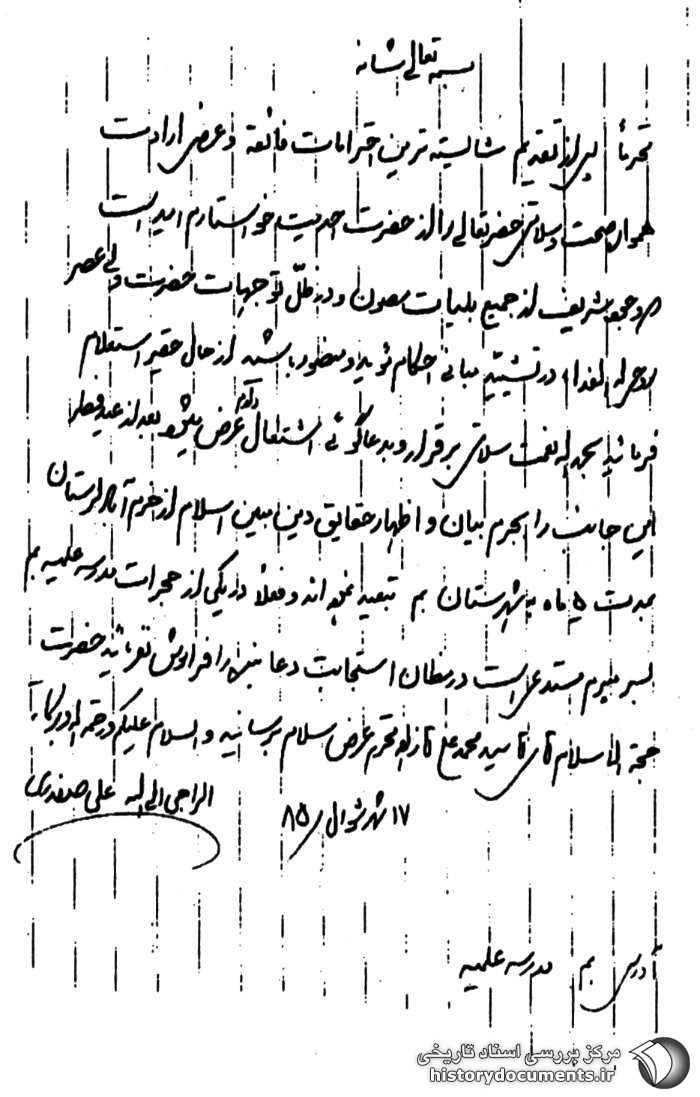 بسمه تعالی شانه
محترماً پس از تقدیم شایسته ترین احترامات فائقه و عرض ارادت
همواره صحت و سلامتی حضرتعالی را از حضرت احدیت خواستارم امید است
وجود شریف از جمیع بلیات مصون و در ظلّ توجهات حضرت ولی عصر
روحی له الفداء در تشیید مبانی احکام موید و منصور باشید از حال حقیر استعلام
فرمائید بحمدالله نعمت سلامتی برقرار و بدعاگوئی اشتغال دارم عرض میشود بعد از عید فطر
این جانب را بجرم بیان و اظهار حقایق دین مبین اسلام از خرم آباد لرستان
بمدت ۵ ماه به شهرستان بم تبعید نموده اند و فعلاً در یکی از حجرات مدرسه علمیه بم
بسر میبرم مستدعی است در مظان استجابت دعا بنده را فراموش نفرمائید حضرت
حجة الاسلام آقای آقا سید محمد علی آقازاده محترم عرض سلام برسانید والسلام علیکم ورحمة الله وبرکاته
الراجی الی الله علی صفدری
۱۷ شهر شوال ۸۵
آدرس بم مدرسه علمیه
مرکز بررسی اسناد تاریخی
historydocuments.ir